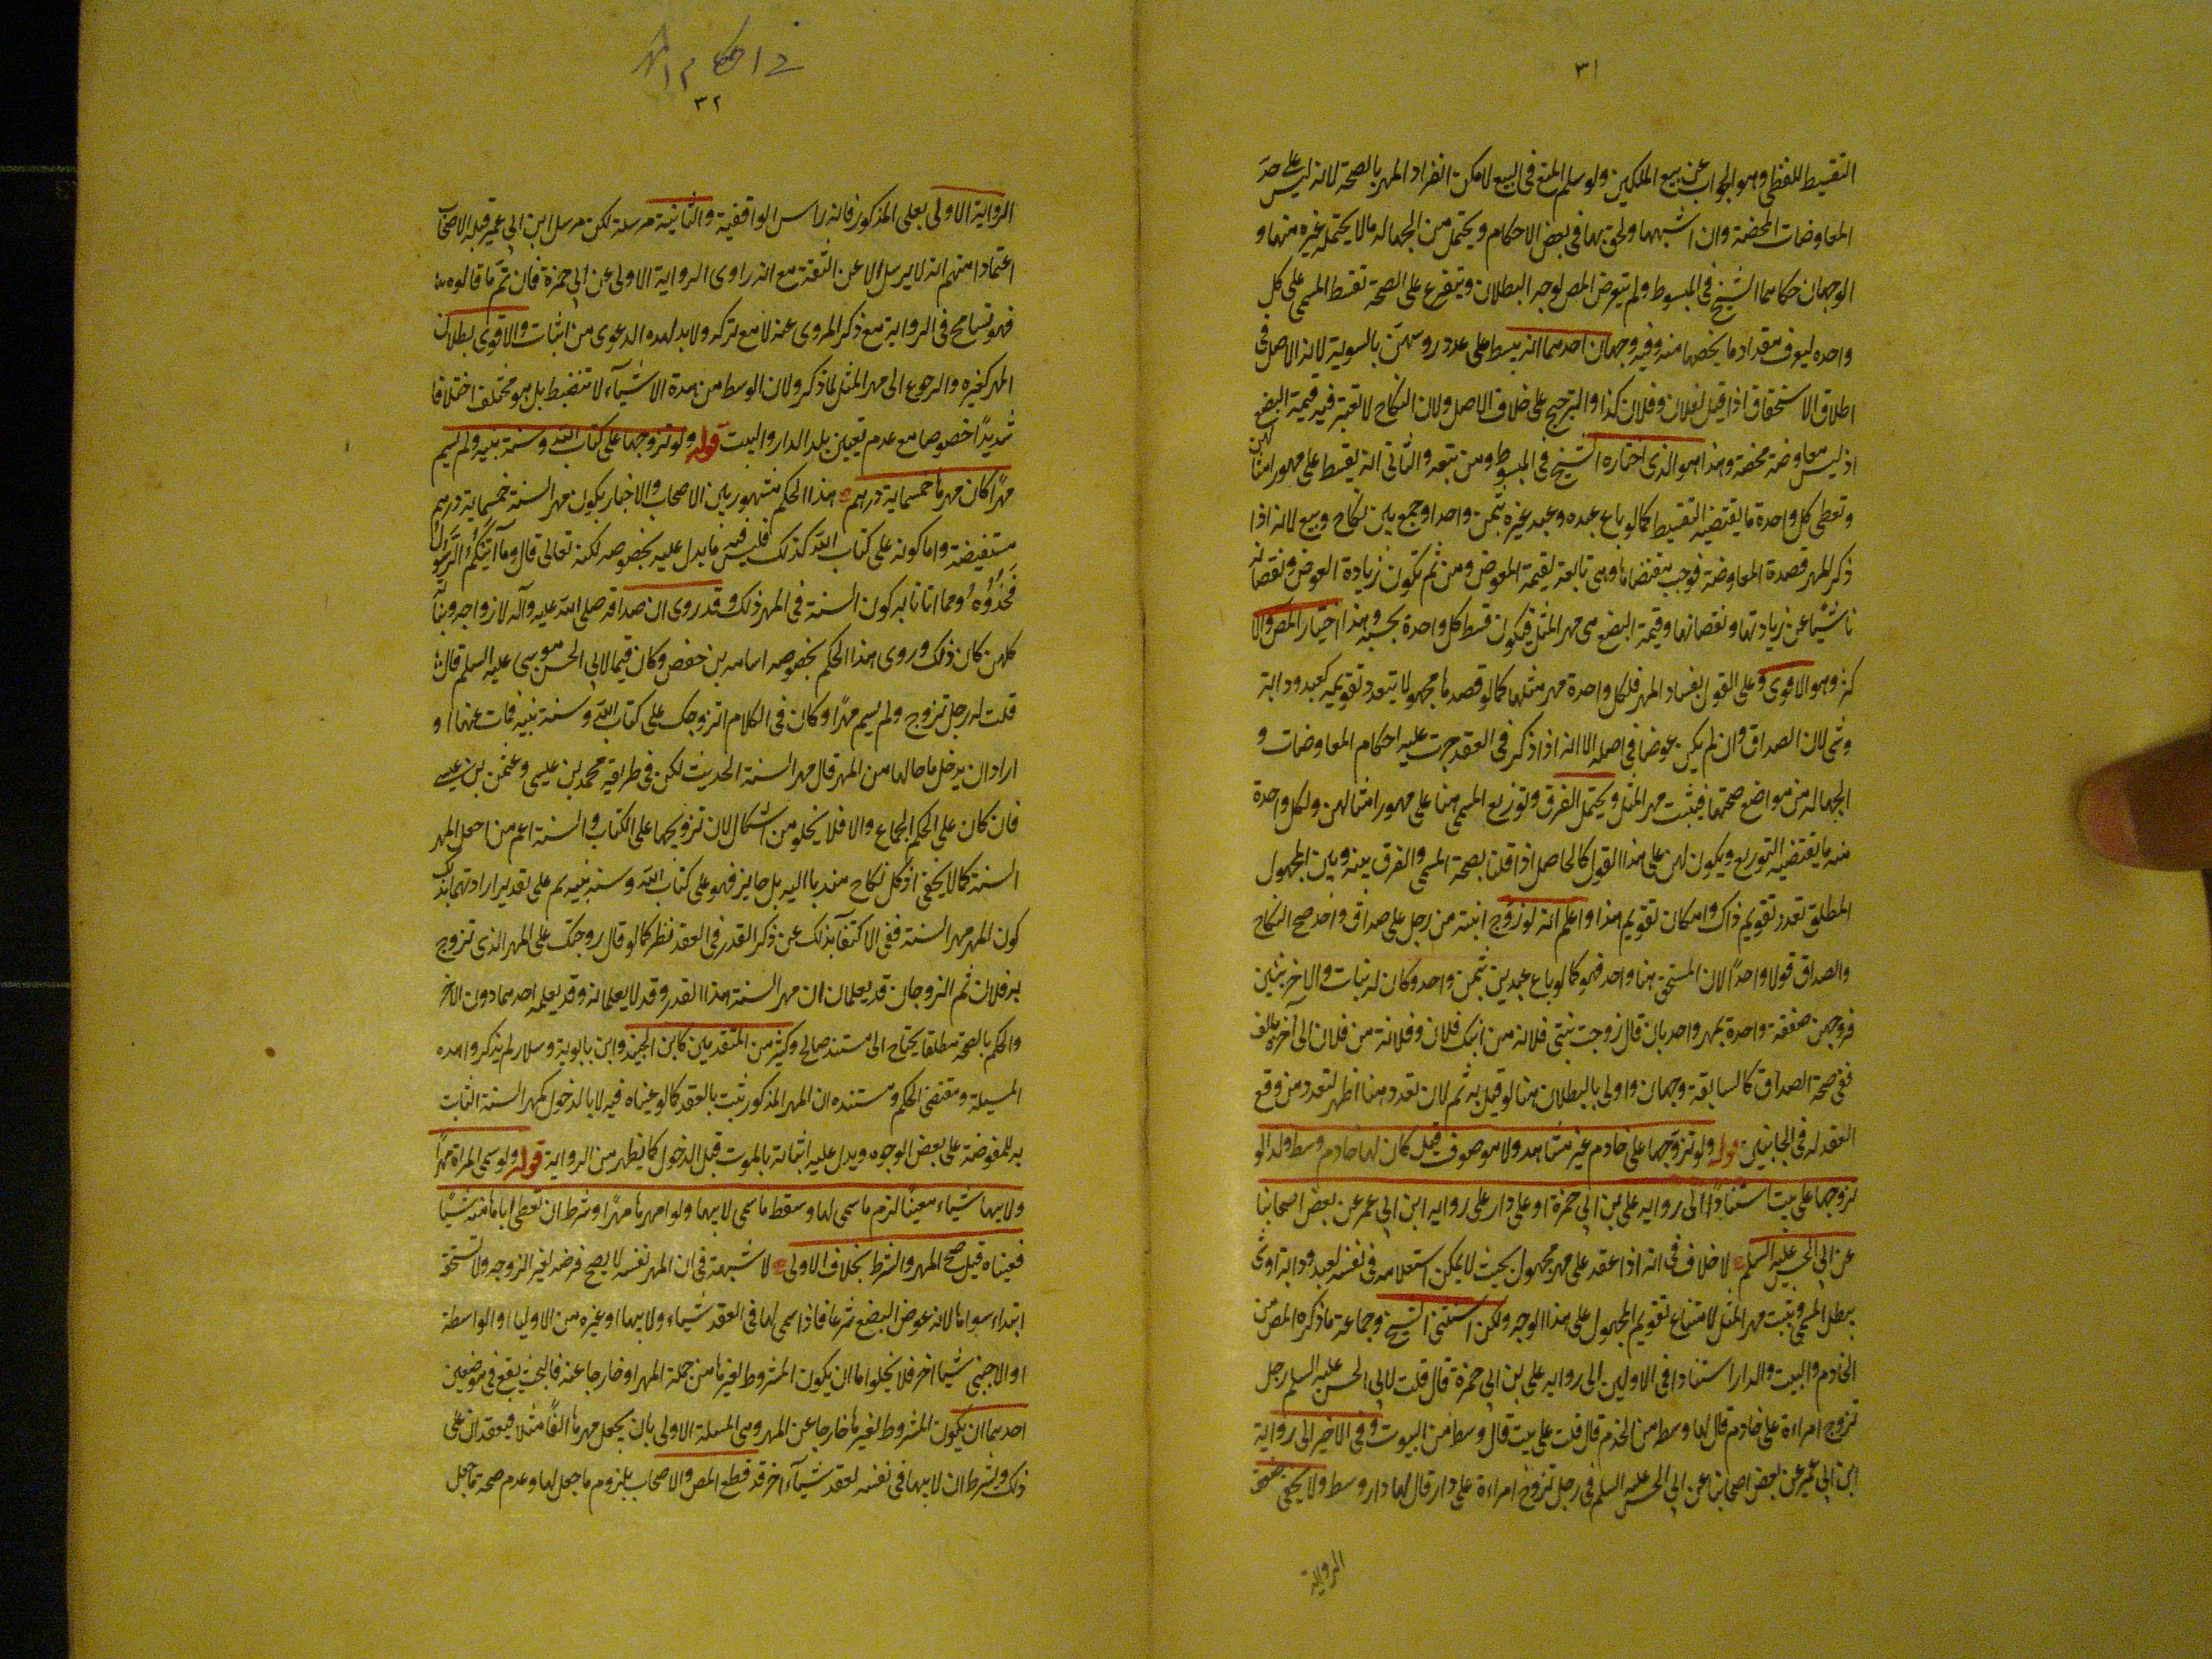 ٣١
التقسيط اللفظى وهو الجواب عن بيع الملكين ولو سلم المنع فى البيع لامكن انفراد المهر بالصحة لانه ليس على حد
المعاوضات المحضة وان اشبهها ولحق بها فى بعض الاحكام ويحتمل من الجهالة مالا يحتمله غيره منها و
الوجهان حكاهما الشيخ فى المبسوط ولم يتعرض المص لوجه البطلان ويتفرع على الصحة تقسط المسمى على كل
واحدة ليعرف مقدار ما يخصها منه وفيه وجهان احدهما انه يبسط على عدد روسهن بالسوية لانه الاصل فى
اطلاق الاستحقاق اذا قيل لفلان وفلان كذا والترجيح على خلاف الاصل ولان النكاح لا تعتبر فيه قيمة البضع
اذ ليس معاوضة محضة وهذا هو الذى اختاره الشيخ فى المبسوط ومن تبعه والثانى انه يقسط على مهور امثالهن
وتعطى كل واحدة ما يقتضيه التقسيط كما لو باع عبده وعبد غيره بثمن واحد او جمع بين نكاح وبيع لانه اذا
ذكر المهر قصدة المعاوضة فوجب مقتضاها وهى تابعة لقيمة المعوض ومن ثم تكون زيادة العوض ونقصانه
ناشيًا عن زيادتها ونقصانها وقيمة البضع هى مهر المثل فيكون قسط كل واحدة بحسبه وهذا اختيار المص والا
كثر وهو الاقوى وعلى القول بفساد المهر فلكل واحدة مهر مثلها كما لو قصدها مجهولا يتعدد تقويمه كعبد ودابة
وشى لان الصداق وان لم يكن عوضا فى اصله الا انه اذا ذكر فى العقد جرت عليه احكام المعاوضات و
الجهالة من مواضع صحتها فيثبت مهر المثل ويحتمل الفرق وتوزيع المسمى هنا على مهور امثالهن ولكل واحدة
منه ما يقتضيه التوزيع ويكون لهن على هذا القول كالحاصل اذا قلنا بصحة المسمى والفرق بينه وبين المجهول
المطلق تعدد تقويم ذاك وامكان تقويم هذا واعلم انه لو زوج ابنته من رجل على صداق واحد صح النكاح
والصداق قولا واحدًا لان المستحق هنا واحد فهو كما لو باع عبدين بثمن واحد وكان له بنات والاخر بنين
فزوجهن صفقة واحدة بمهر واحد بان قال زوجت بنتى فلانة من ابنك فلان وفلانة من فلان الى آخره بالف
ففى صحة الصداق كالسابقة وجهان واولى بالبطلان هنا لو قيل به ثم لان تعدد هنا اظهر لتعدد من وقع
العقد له فى الجانبين قوله ولو تزوجها على خادم غير مشاهد ولا موصوف قيل كان لها خادم وسط ولد الو
تزوجها على بيت استنادًا الى رواية على بن ابى حمزة او على دار على رواية ابن ابى عمير عن بعض اصحابنا
عن ابى الحسن عليه السلم لا خلاف فى انه اذا عقد على مهر مجهول بحيث لا يمكن استعلامه فى نفسه لعبد ودابة وشى
يبطل المسمى ويثبت مهر المثل لامتناع تقويم المجهول على هذا الوجه ولكن استثنى الشيخ وجماعة ما ذكره المص من
الخادم والبيت والدار استنادا فى الاولين الى رواية على بن ابى حمزة قال قلت لابى الحسن عليه السلم رجل
تزوج امراءة على خادم قال لها وسط من الخدم قال قلت على بيت قال وسط من البيوت وفى الاخير الى رواية
ابن ابى عمير عن بعض اصحابنا عن ابى الحسن عليه السلم فى رجل تزوج امراءة على دار قال لها دار وسط ولا يخفى ضعف
الرواية
٣٢
الرواية الاولى بعلى المذكور فانه راس الواقفية والثانية مرسلة لكن مرسل ابن ابى عمير قبله الاصحاب
اعتمادا منهم انه لا يرسل الا عن الثقة مع انه راوى الرواية الاولى عن ابى حمزة فان تم ما قالوه
فهو تسامح فى الرواية مع ذكر المروى عنه لا مع تركه ولابد لهذه الدعوى من اثبات والاقوى بطلان
المهر كغيره والرجوع الى مهر المثل لما ذكر ولان الوسط من هذة الاشيآء لا تنضبط بل هو مختلف اختلافا
شديدًا خصوصا مع عدم تعيين بلد الدار والبيت قوله ولو تزوجها على كتاب الله وسنة نبيه ولم يسم
مهرًا كان مهرها خمسماية درهم هذا الحكم مشهور بين الاصحاب والاخبار بكون مهر السنة خمسماية درهم
مستفيضة واما كونه على كتاب الله كذلك فليس فيه ما يدل عليه بخصوصه لكنه تعالى قال وما آتيكم الرسول
فخذوه ومما اتانا به كون السنة فى المهر ذلك وقد روى ان صداقه صلى الله عليه وآله لازواجه وبناته
كلهن كان ذلك وروى هذا الحكم بخصوصه اسامه بن حفص وكان قيما لابى الحسن موسى عليه السلم قال
قلت له رجل تزوج ولم يسم مهرًا وكان فى الكلام اتزوجك على كتاب الله وسنة نبيه فمات عنها او
اراد ان يدخل ما حالها من المهر قال مهر السنة الحديث لكن فى طريقه محمد بن عيسى وعثمن بن عيسى
فان كان على الحكم اجماع والا فلا يخلو من اشكال لان تزويجها على الكتاب والسنة اعم من جعل المهر
السنة كما لا يخفى اذ كل نكاح مندب اليه بل جايز فهو على كتاب الله وسنه نبيه ثم على تقدير ارادتهما بذلك
كون المهر مهر السنة ففى الاكتفآء بذلك عن ذكر القدر فى العقد نظر كما لو قال زوجتك على المهر الذى تزوج
به فلان ثم الزوجان قد يعلمان ان مهر السنة هذا القدر وقد لا يعلمانه وقد يعلمه احدهما دون الاخر
والحكم بالصحة مطلقا يحتاج الى مستند صالح وكثير من المتقدمين كابن الجنيد وابن بابويه وسلار لم يذكروا هذه
المسيلة ومقتضى الحكم ومستنده ان المهر المذكور يثبت بالعقد كما لو عيناه فيه لا بالدخول كمهر السنة الثابت
به للمفوضة على بعض الوجوه ويدل عليه اثباته بالموت قبل الدخول كما يظهر من الرواية قوله ولو سمى للمراة مهرًا
ولابيها شياء معينًا لزم ما سمى لها وسقط ما سمى لابيها ولو امهرها مهرًا وشرط ان تعطى اباها منه شيئًا
معينا قيل صح المهر والشرط بخلاف الاولى لا شبهة فى ان المهر نفسه لا يصح فرضه لغير الزوجه ولا تستحقه
ابتداء سواها لانه عوض البضع شرعا فاذا سمى لها فى العقد شياء ولابيها او غيره من الاوليا او الواسطة
او الاجنبى شيئا اخر فلا يخلوا اما ان يكون المشروط لغيرها من جملة المهر او خارجا عنه فالبحث يقع فى موضعين
احدهما ان يكون المشروط لغيرها خارجا عن المهر وهى المسئلة الاولى بان يجعل مهرها الفًا مثلا فيعقدان على
ذلك ويشرط ان لابيها فى نفس العقد شيآء اخر قد قطع المص والاصحاب بلزوم ما جعل لها وعدم صحة ما جعل